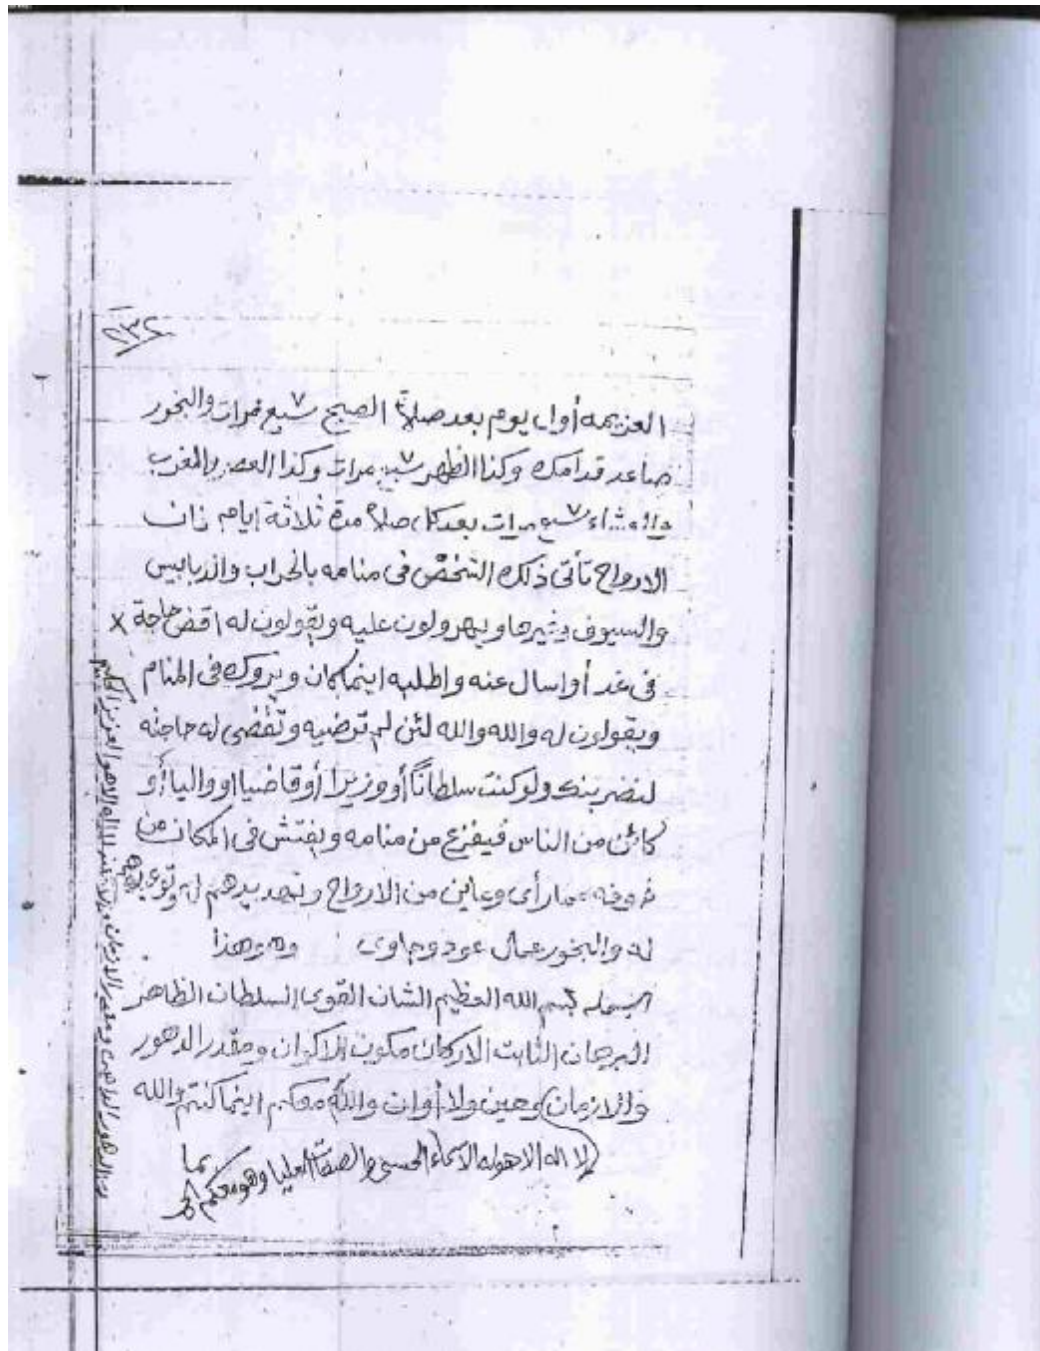 ١٣٢
العزيمه أول يوم بعد صلاة الصبح سبع ٧ مرات والبخور
صاعد قدامك وكذا الظهر سبع ٧ مرات وكذا العصر والمغرب
والعشاء سبع ٧ مرات بعد كل صلاة مدة ثلاثة ايام فان
الارواح تأتى ذلك الشخص فى منامه بالحراب والدبابيس
والسيوف وغيرها ويهرولون عليه ويقولون له اقض حاجة ×
فى غد أو اسال عنه واطلبه اينما كان و فى المنام
ويقولون له والله والله لئن لم ترضيه وتقضى له حاجته
لنضربنك ولو كنت سلطاناً أو وزيرا أو قاضيا او واليا أو
كائن من الناس فيفزع من منامه ويفتش فى المكان من
خوفه مما رأى وعاين من الارواح وتهديدهم له
له والبخور عمال عود وجاوى وهو هذا
البسمله بسم الله العظيم الشان القوى السلطان الظاهر
البرهان الثابت الاركان مكون الاكوان ومقدر الدهور
والازمان وحين ولا أوان والله معكم اينما كنتم والله
لا اله الا هو له الاسماء الحسنى والصفات العليا وهو معكم
بما
الدهور والازمان الاله الا هو العزيز الحكيم